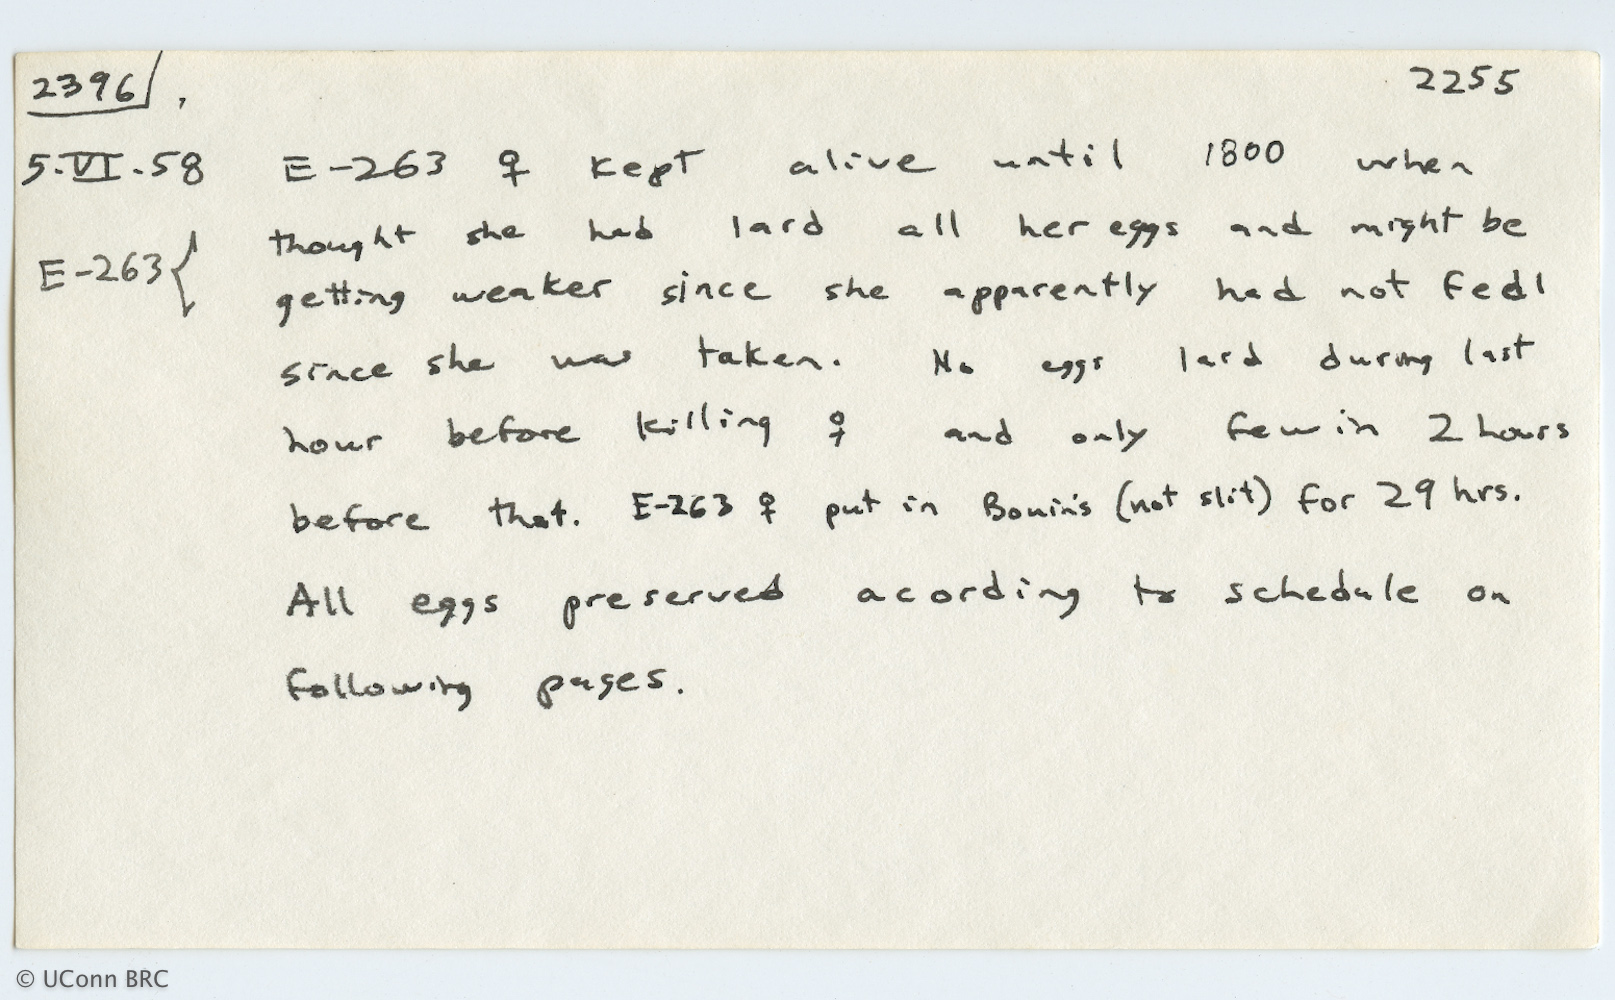 2396 , 2255
5.VI.58 E-263 ♀ kept alive until 1800 when
thought she had laid all her eggs and might be
E-263{
getting weaker since she apparently had not fed
since she was taken. No eggs laid during last
hour before killing ♀ and only few in 2 hours
before that. E-263 ♀ put in Bouin's (not slit) for 29 hrs.
All eggs preserved acording to schedule on
following pages.
© UConn BRC